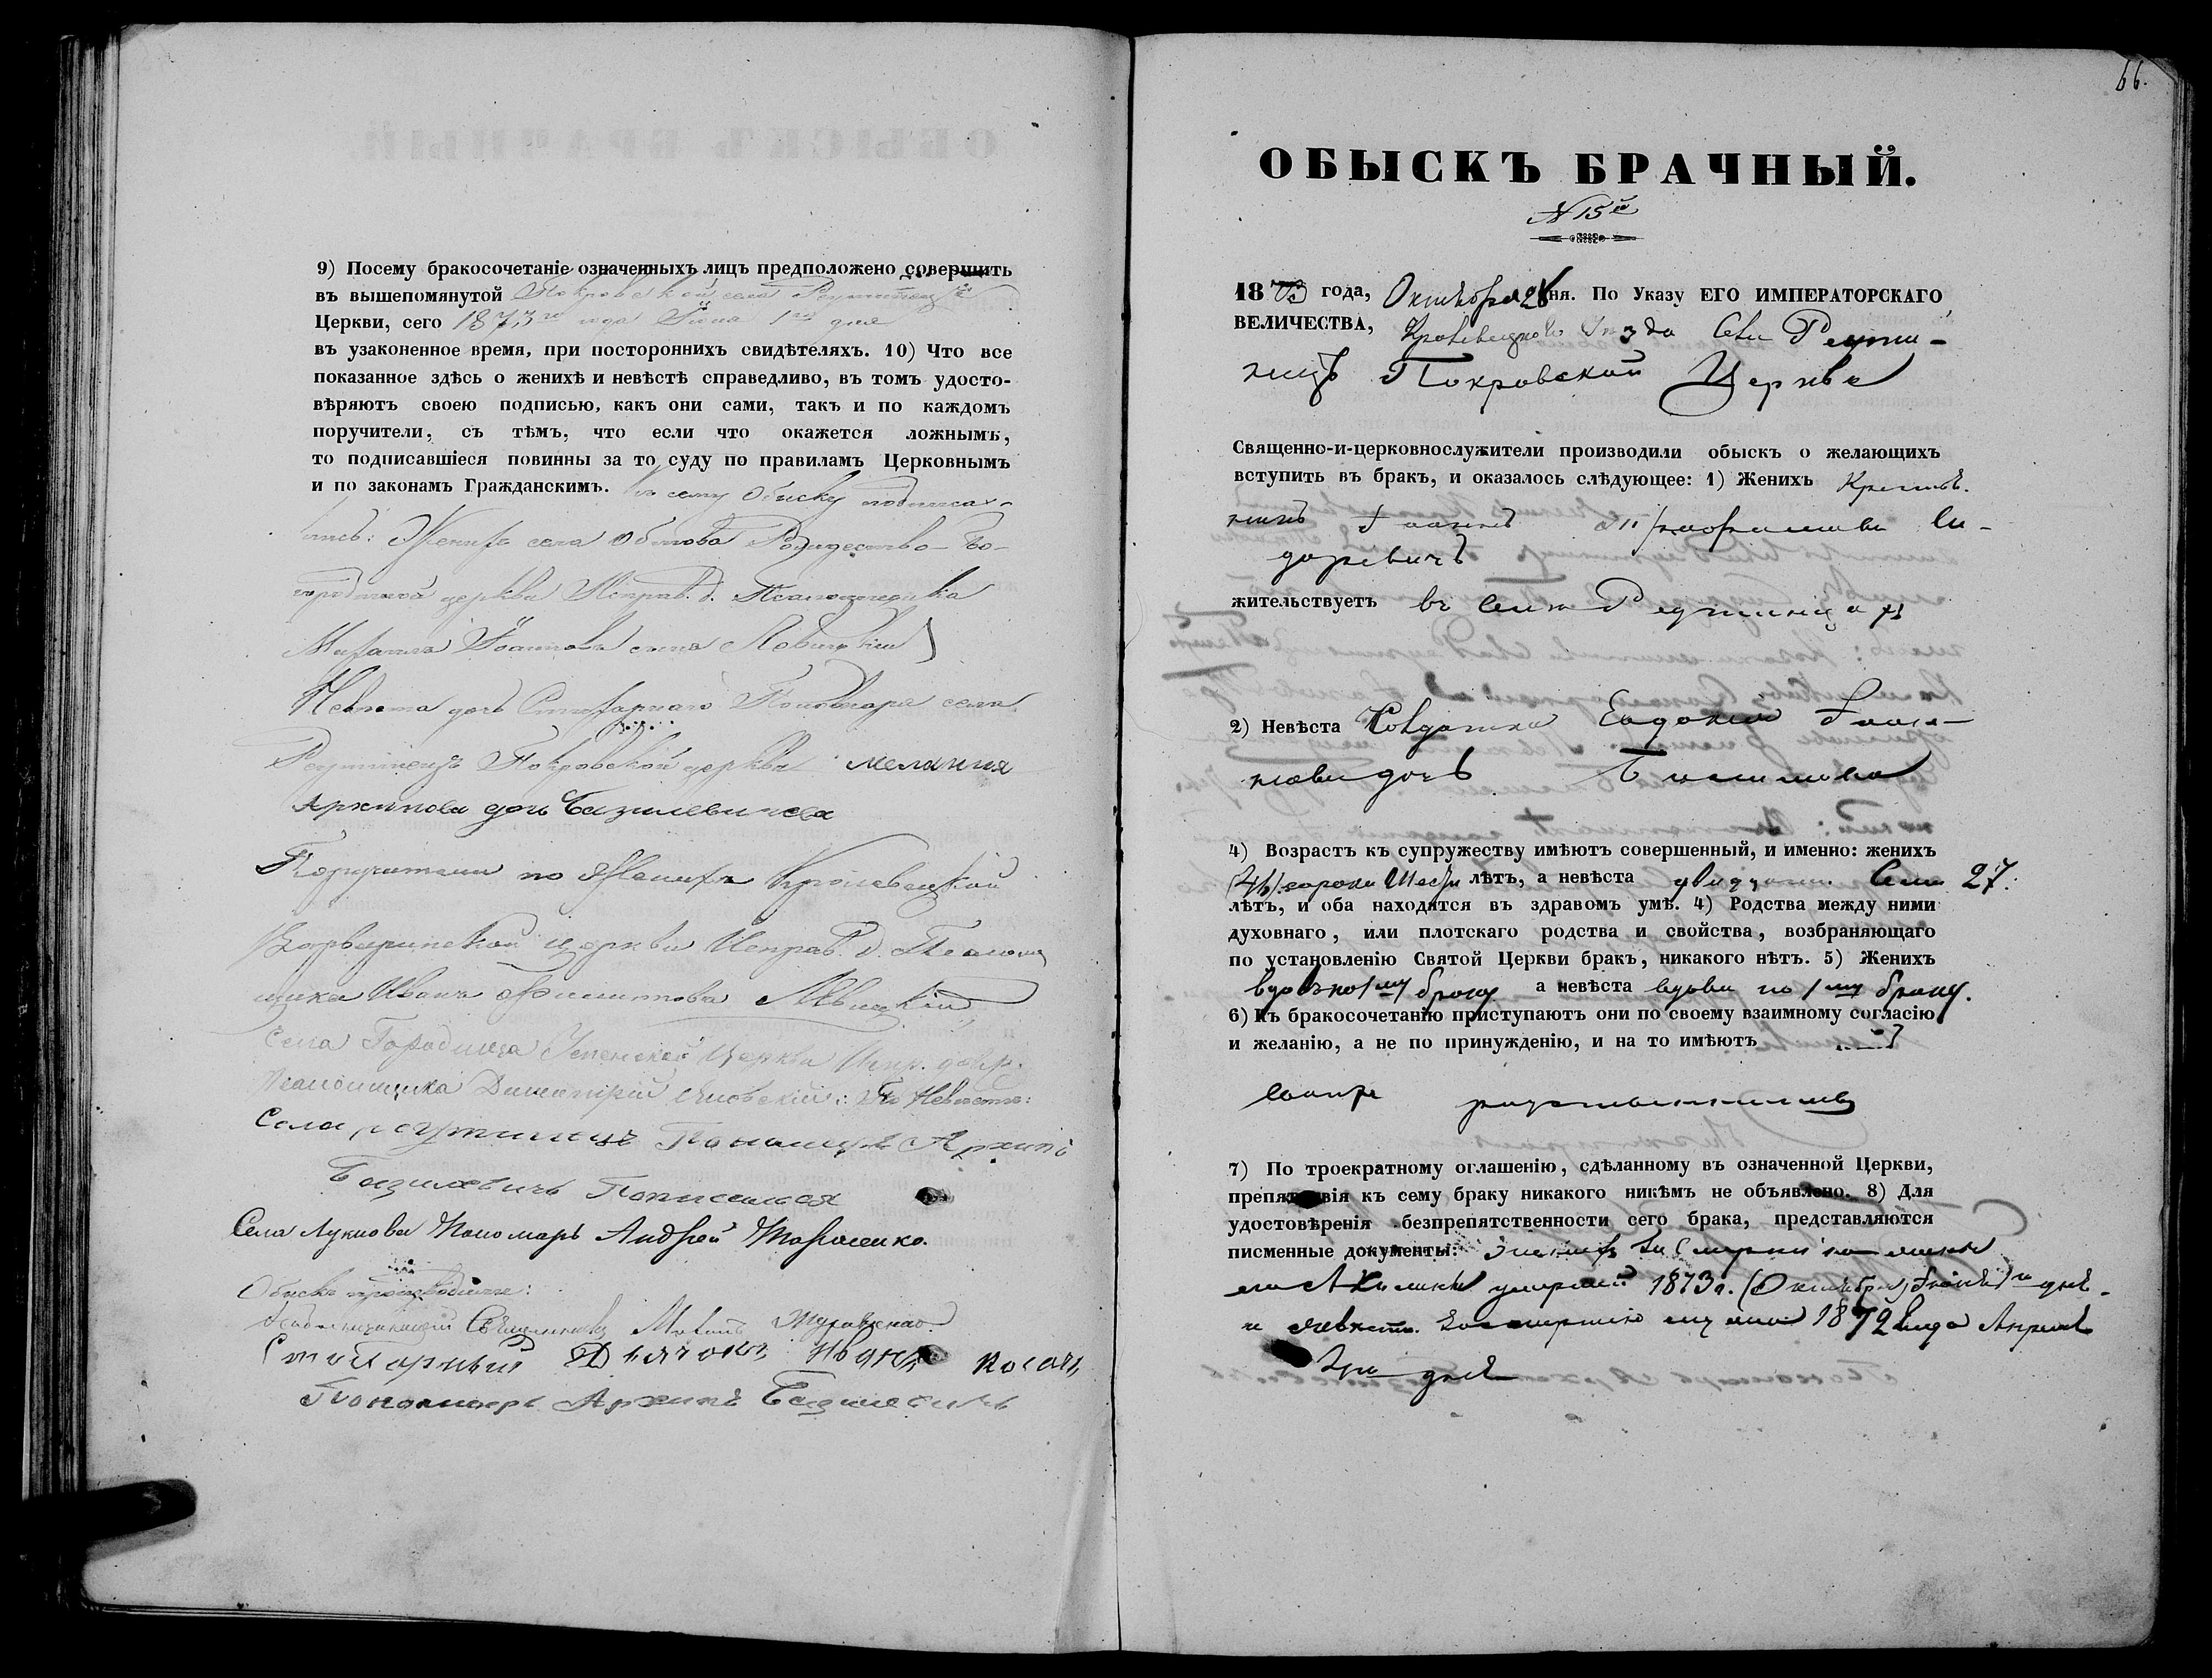 9) Посему бракосочетаніе означенныхъ лицъ предположено совершить
въ вышепомянутой Покровской села Реутинецъ
Церкви, сего 1873го года Іюна 1го дня
въ узаконенное время, при постороннихъ свидѣтеляхъ. 10) Что все
показанное здѣсь о женихѣ и невѣстѣ справедливо, въ томъ удосто-
вѣряютъ своею подписью, какъ они сами, такъ и по каждомъ
поручители, съ тѣмъ, что если что окажется ложнымъ,
то подписавшіеся повинны за то суду по правиламъ Церковнымъ
и по законамъ Гражданскимъ. Къ сему обыску подписа-
лись: Женихъ села Обтова Рождество-Бо-
городичной церкви Исправ. д. Псаломщика
Михаилъ Іоанновъ сынъ Левицкій
Невѣста дочь Стихарнаго Пономаря села
Реутинецъ Покровской церкви Мелания
Архипова дочь Базилевичева
Поручители по Женихѣ Кролевецкой
Варваринской церкви Исправ. д. Псалом
щика Иванъ Филиповъ Левицкій
Села Городища Успенской Церкви Испр. долж.
Псаломщика Димитрій :По Невѣсте:
Села реутинецъ Пономарь Архипъ
Базилевичъ Пописался
Села Лукнова Пономарь Андрей Тарасенко.
Обыскъ производили:
Священникъ
Стихарный Дьячокъ Иванъ Косачъ
Пономарь Архипъ Базилевичъ
66.
ОБЫСКЪ БРАЧНЫЙ.
N 15й
1873 года, Октября 28 дня. По Указу ЕГО ИМПЕРАТОРСКАГО
ВЕЛИЧЕСТВА, Кролевецкого Уезда Села Реути-
нецъ Покровской Церкви
Священно-и-церковнослужители производили обыскъ о желающихъ
вступить въ бракъ, и оказалось слѣдующее: 1) Женихъ Крестья-
нинъ Іоаннъ Си-
доревичъ
жительствуетъ въ Селѣ Реутинцахъ
2) Невѣста Солдатка Евдокія Іоан-
нова дочь
4) Возрастъ къ супружеству имѣютъ совершенный, и именно: женихъ
(46) сорокъ Шесть лѣтъ, а невѣста двадцать Семь 27:
лѣтъ, и оба находятся въ здравомъ умѣ. 4) Родства между ними
духовнаго, или плотскаго родства и свойства, возбраняющаго
по установленію Святой Церкви бракъ, никакого нѣтъ. 5) Женихъ
вдовъ по 1му браку а невѣста вдова по 1му браку.
6) Къ бракосочетанію приступаютъ они по своему взаимному согласію
и желанію, а не по принужденію, и на то имѣютъ
своихъ родственниковъ
7) По троекратному оглашенію, сдѣланному въ означенной Церкви,
препятствія къ сему браку никакого никѣмъ не объявлено. 8) Для
удостовѣренія безпрепятственности сего брака, представляются
писменные документы: женихъ за смертію жены
его Акилины умершей 1873 г. (Октября) дня.
и невѣста за смертію мужа 1872 года Апреля
дня